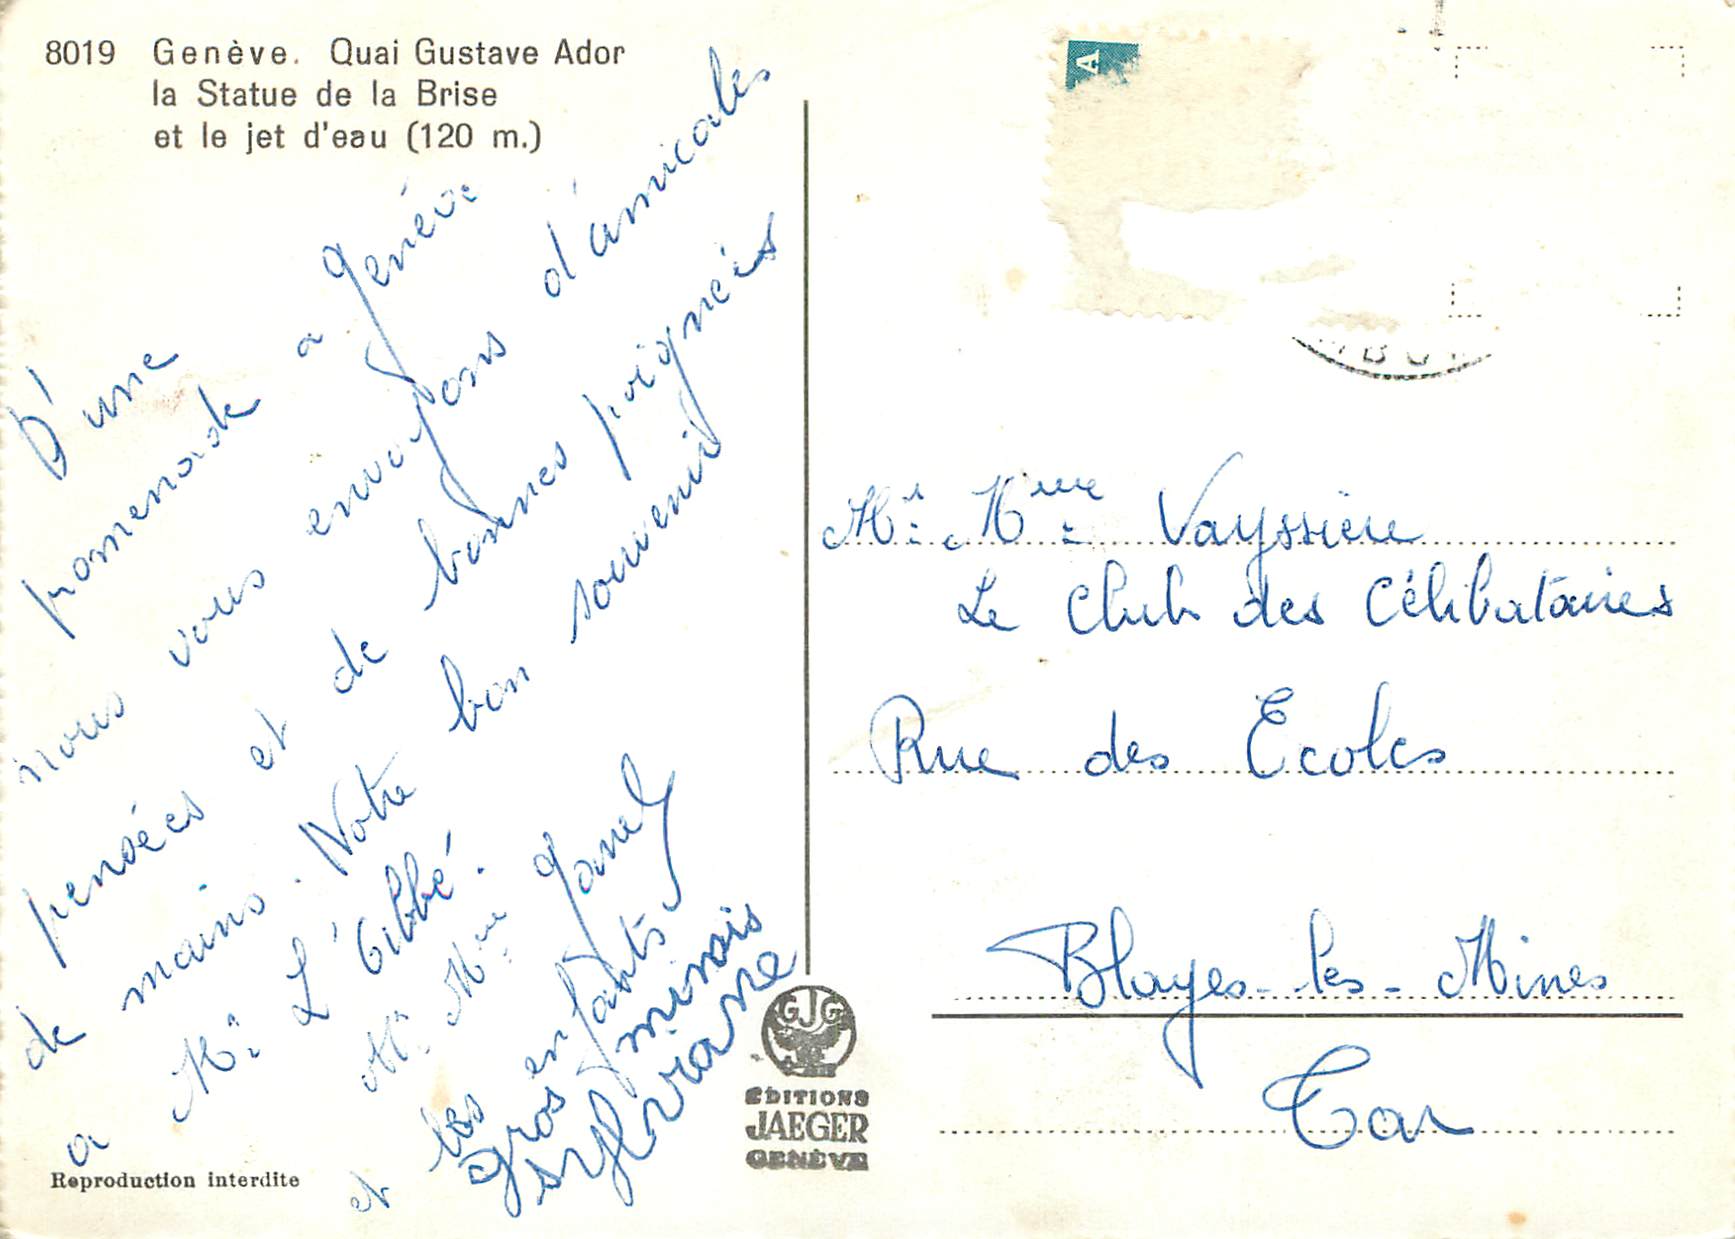 8019 Genève. Quai Gustave Ador
la Statue de la Brise
et le jet d'eau (120 m.)
D'une
promenade a Genéve
nous vous envoyons d'amicales
pensées et de bonnes poignées
de mains. Notre bon souvenir
a Mr L'Abbé.
Mr Mme
et les enfants
gros minois
sylviane
Reproduction interdite
A
GJG
EDITIONS
JAEGER
GENÈVE
Mr. Mme Vayssière
Le Club des Célibataires
Rue des Ecoles
Blayes-les-Mines
Tar